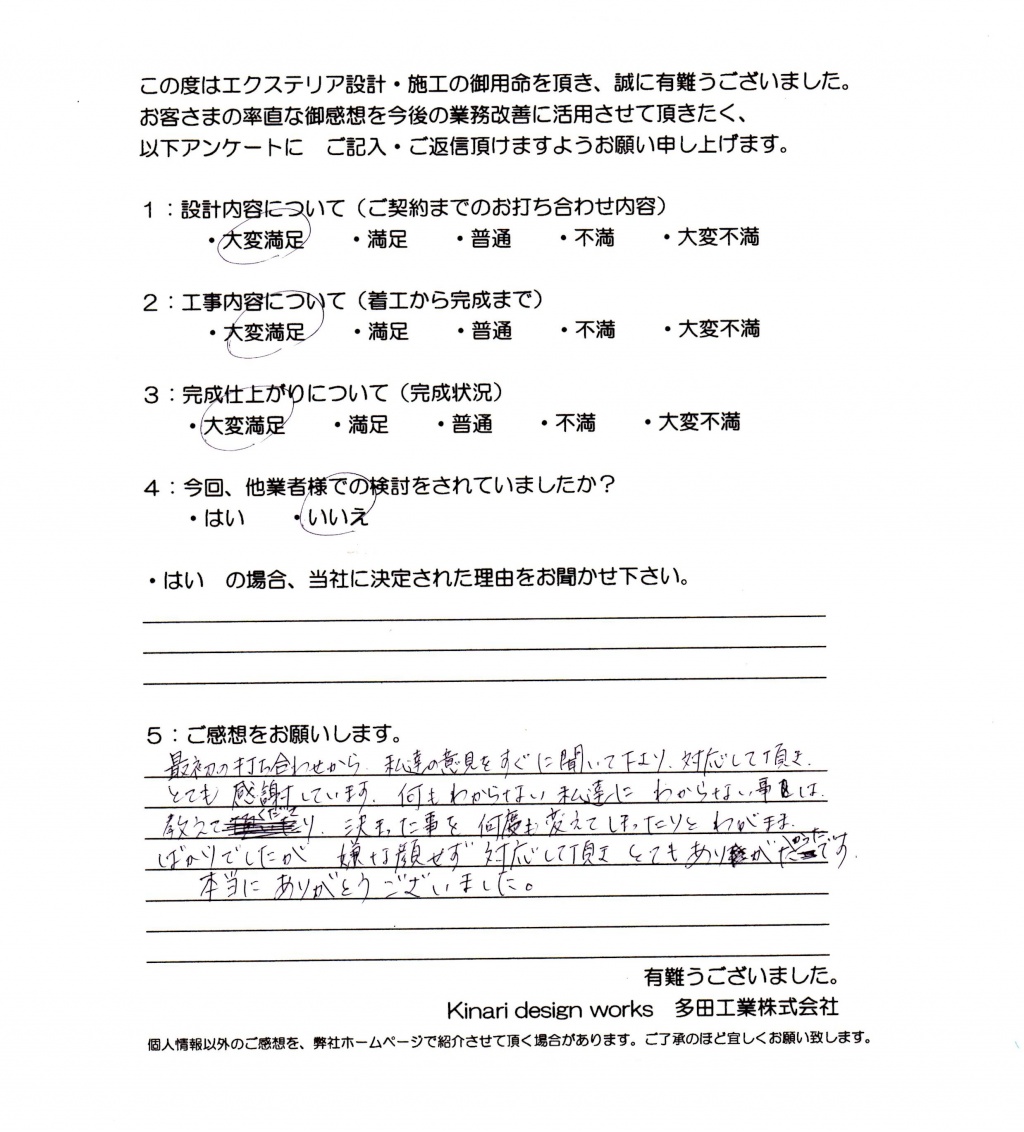 この度はエクステリア設計・施工の御用命を頂き、誠に有難うございました。
お客さまの率直な御感想を今後の業務改善に活用させて頂きたく、
以下アンケートに　ご記入・ご返信頂けますようお願い申し上げます。
1：設計内容について（ご契約までのお打ち合わせ内容）
・大変満足　・満足　・普通　・不満　・大変不満
2：工事内容について（着工から完成まで）
・大変満足　・満足　・普通　・不満　・大変不満
3：完成仕上がりについて（完成状況）
・大変満足　・満足　・普通　・不満　・大変不満
4：今回、他業者様での検討をされていましたか？
・はい　・いいえ
・はい　の場合、当社に決定された理由をお聞かせ下さい。
5：ご感想をお願いします。
最初の打ち合わせから、私達の意見をすぐに聞いて下さり、対応して頂き、
とても感謝しています。何もわからない私達に わからない事は、
教えてくださり、決まった事を 何度も変えてしまったりと わがまま
ばかりでしたが 嫌な顔せず 対応して頂き とてもありがたかったです。
本当に ありがとうございました。
有難うございました。
Kinari design works　多田工業株式会社
個人情報以外のご感想を、弊社ホームページで紹介させて頂く場合があります。ご了承のほど宜しくお願い致します。